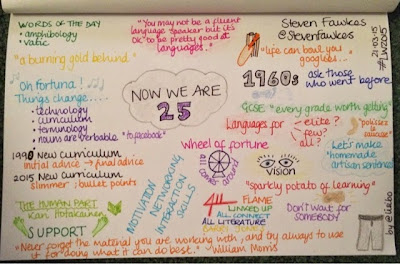 WORDS OF THE DAY
• amphibology
• vatic
"a burning gold behind"
"You may not be a fluent
language speaker but it's
OK to be pretty good at
languages.."
Steven Fawkes
@stevenfawkes
21-03-15
#LW2015
"life can bowl you
googlies..."
Oh fortuna!
Things change.....
• technology
• curriculum
• terminology
• nouns are verbable
"to facebook"
NOW WE ARE
25
1960s
ask those
who went before
GCSE "every grade worth getting"
Languages for
elite?
few?
all?
"politesse is
success"
1990 New curriculum
initial advice → final advice
2015 New Curriculum
slimmer; bullet points
Wheel of fortune
all comes around
VISION
Let's make
"homemade
artisan sentences"
THE HUMAN PART
Kari Hotakainen
SUPPORT
MOTIVATION
NETWORKING
INTERACTION
SKILLS
"sparkly potato of learning"
4 all
FLAME
LINKED UP
ALL CONNECT
ALL LITERATURE
Don't want
SOMEBODY
by @
"Never forget the material you are working with, and try always to use
it for doing what it can do best." - William Morris